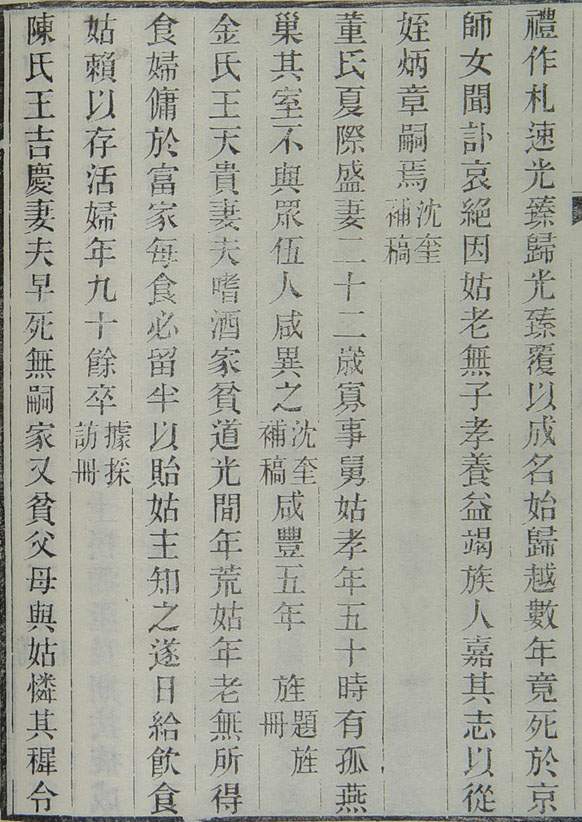 禮作札速光臻歸光臻覆以成名始歸越數年竟死於京
師女聞訃哀絕因姑老無子孝養益竭族人嘉其志以從
姪炳章嗣焉沈奎補稿
董氏夏際盛妻二十二歲寡事舅姑孝年五十時有孤燕
巢其室不與眾伍人咸異之沈奎補稿咸豐五年旌題旌冊
金氏王天貴妻夫嗜酒家貧道光間年荒姑年老無所得
食婦傭於富家每食必留半以貽姑主知之遂日給飲食
姑賴以存活婦年九十餘卒據採訪冊
陳氏王吉慶妻夫早死無嗣家又貧父母與姑憐其穉令